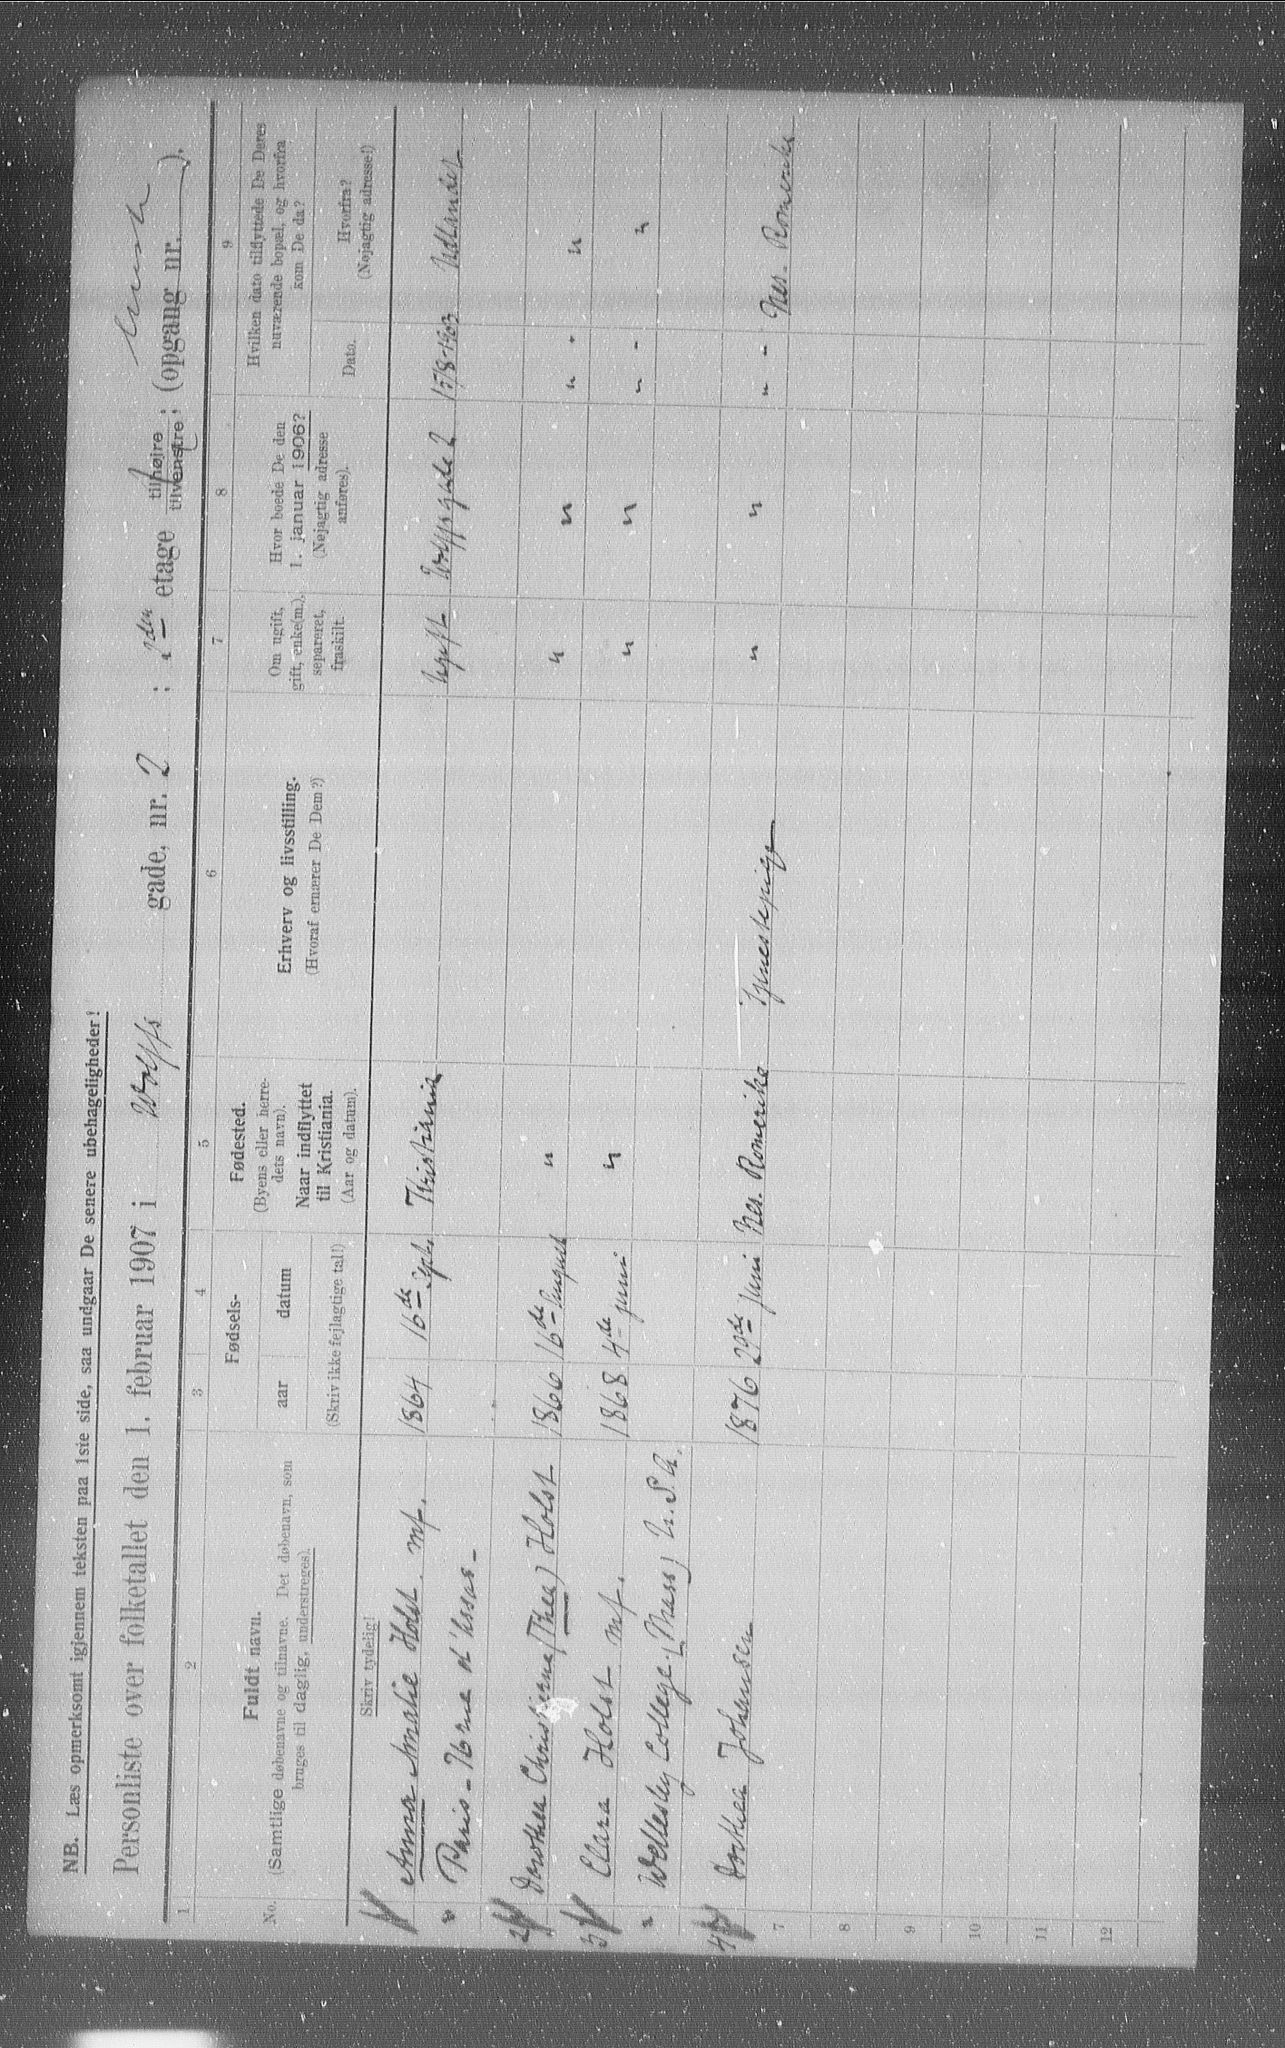 NB. Læs opmerksomt igjennem teksten paa 1ste side, saa undgaar De senere ubehageligheder!
Personliste over folketallet den 1. februar 1907 i Wolffs gade, nr. 2 ; 2den etage tilhøjre, tilvenstre, (opgang nr. ).
1 2 3 4 5 6 7 8 9
No.
Fuldt navn.
(Samtlige døbenavne og tilnavne. Det døbenavn, som
bruges til daglig, understreges).
Fødsels-
aar datum
Fødested.
(Byens eller herre-
dets navn).
Naar indflyttet
til Kristiania.
(Aar og datum).
Erhverv og livsstilling.
(Hvoraf ernærer De Dem?)
Om ugift,
gift, enke(m.),
separeret,
fraskilt.
Hvor boede De den
1. januar 1906?
(Nøjagtig adresse
anføres).
Hvilken dato tilflyttede De Deres
nuværende bopæl, og hvorfra
kom De da?
Dato.
Hvorfra?
(Nøjagtig adresse!)
Skriv tydelig!
(Skriv ikke fejlagtige tal!)
Anna Amalie Holst. mf. 1864 16de Sept. Kristiania Ugift Wolffsgade 2 15/8-1903 Udlandet
" Paris -
2 Dorothea Christiane (Thea) Holst 1866 16de August " " " " - "
3 Clara Holst mf. 1868 4de juni " " " " - "
" Wellesley College, (Mass) U.S.A.
4 Dorthea Johansen 1876 29de juni Nes. Romerike Tjenestepige " " " - Nes. Romerike
7
8
9
10
11
12